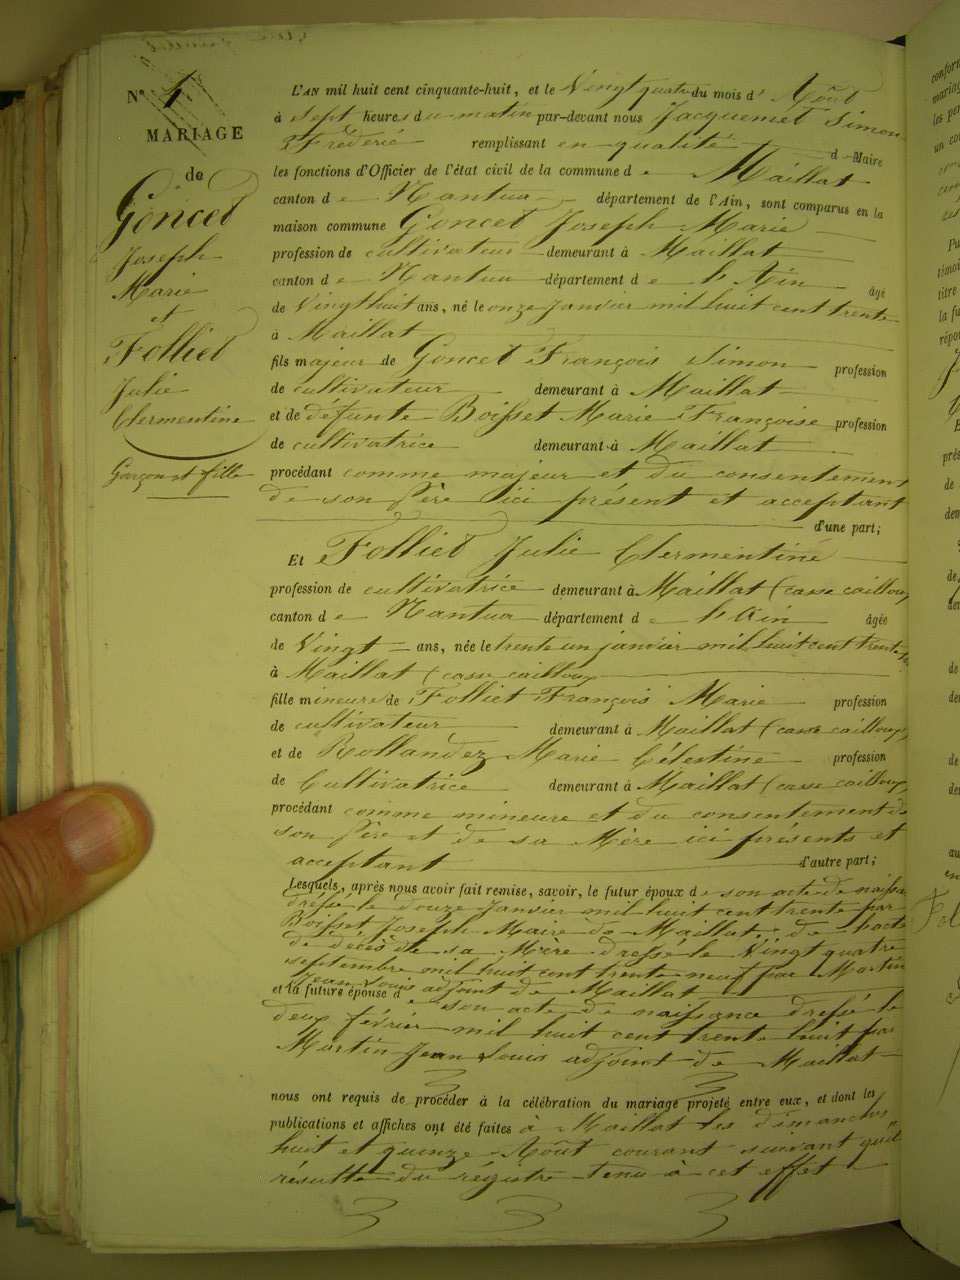 N° 5
MARIAGE
de
Goncet
Joseph
Marie
et
Folliet
Julie
Clermentine
Garçon et fille
L'AN mil huit cent cinquante-huit, et le Vingt quatre du mois d' Août
à sept heures du matin par-devant nous Jacquemet Simon
Fréderic remplissant en qualité d Maire
les fonctions d'Officier de l'état civil de la commune de Maillat
canton de Nantua département de l'Ain, sont comparus en la
maison commune Goncet Joseph Marie
profession de cultivateur demeurant à Maillat
canton de Nantua département de l'Ain âgé
de Vingt huit ans, né le onze janvier mil huit cent trente
à Maillat
fils majeur de Goncet François Simon profession
de cultivateur demeurant à Maillat
et de défunte Boisset Marie Françoise profession
de cultivatrice demeurant à Maillat
procédant comme majeur et du consentement
de son Père ici présent et acceptant
d'une part;
Et Folliet Julie Clermentine
profession de cultivatrice demeurant à Maillat (casse cailloux
canton de Nantua département de l'Ain âgée
de Vingt ans, née le trente un janvier mil huit cent trente
à Maillat (casse cailloux
fille mineure de Folliet François Marie profession
de cultivateur demeurant à Maillat (casse cailloux)
et de Rollandez Marie Célestine profession
de Cultivatrice demeurant à Maillat (casse cailloux)
procédant comme mineure et du consentement de
son Père et de sa Mère ici présents et
acceptant d'autre part;
Lesquels, après nous avoir fait remise, savoir, le futur époux de son acte de naissa
dressé le douze Janvier mil huit cent trente par
Boisset Joseph Maire de Maillat, de l'acte
de décès de sa Mère dressé le Vingt quatre
septembre mil huit cent trente neuf par Martin
Jean Louis adjoint de Maillat
et la future épouse de son acte de naissance dressé le
deux février mil huit cent trente huit par
Martin Jean Louis adjoint de Maillat
nous ont requis de procéder à la célébration du mariage projeté entre eux, et dont les
publications et affiches ont été faites à Maillat les dimanches
huit et quinze Août courant suivant qu'il
résulte du régistre tenu à cet effet